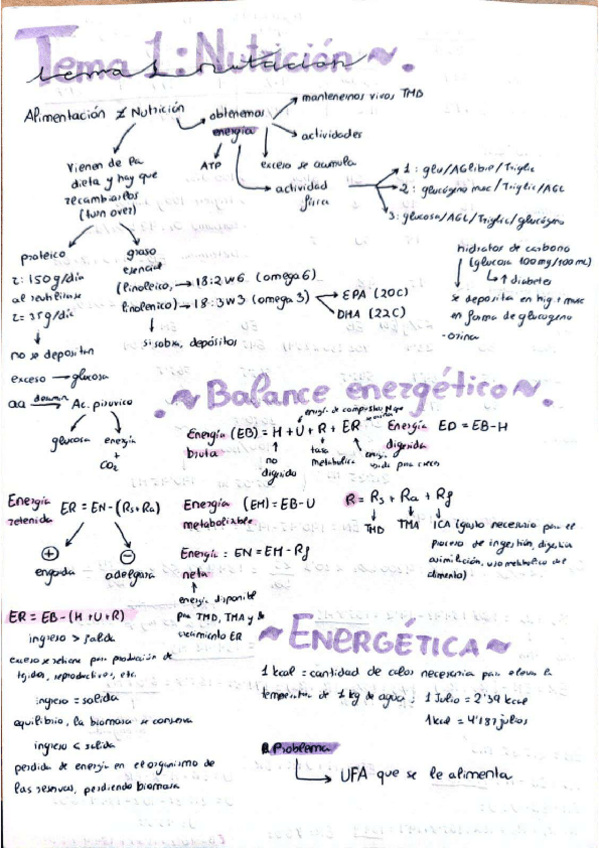 Tema 1: Nutrición ~.
tema 1 nutrición
Alimentación ≠ Nutrición
obtenemos energía
mantenernos vivos TMB
actividades
ATP
exceso se acumula
actividad física
1: glu/AGlibre/Triglic
2: glucógeno musc/Triglic/AGL
3: glucosa/AGL/Triglic/glucógeno
Vienen de la
dieta y hay que
recambiarlos
(turn over)
proteico
τ: 150g/día
al reutilizarse
τ= 35g/día
no se depositan
exceso → glucosa
aa desamin → Ac. pirúvico
glucosa energía
+
CO2
graso
esencial
(linoleico, → 18:2w6 (omega 6)
linolénico) → 18:3w3 (omega 3)
EPA (20C)
DHA (22C)
si sobra, depósitos
hidratos de carbono
(glucosa 100mg/100mL)
↑ diabetes
se deposita en hig. + musc
en forma de glucógeno
- orina
~ Balance energético ~.
Energía (EB) = H + U + R + ER
bruta
no
digerido
tasa
metabólica
Energía ED = EB-H
digerida
Energía ER = EN - (Rs+Ra)
retenida
+ engorda
- adelgaza
Energía (EM) = EB-U
metabolizable
R = Rs + Ra + Rf
TMB TMA ICA (gasto necesario para el
proceso de ingestión, digestión
asimilación, uso metabólico del
alimento)
Energía: EN = EM - Rf
neta
energía disponible
para TMB, TMA y
crecimiento ER
ER = EB - (H + U + R)
ingreso > salida
exceso se retiene para producción de
tejidos, reproductivos, etc.
ingreso = salida
equilibrio, la biomasa se conserva
ingreso < salida
perdida de energía en el organismo de
las reservas, perdiendo biomasa
~ ENERGÉTICA ~
1 kcal = cantidad de calor necesaria para elevar la
temperatura de 1 kg de agua; 1 Julio = 2'39 kcal
1 kcal = 4'187 julios
Problema
UFA que se le alimenta